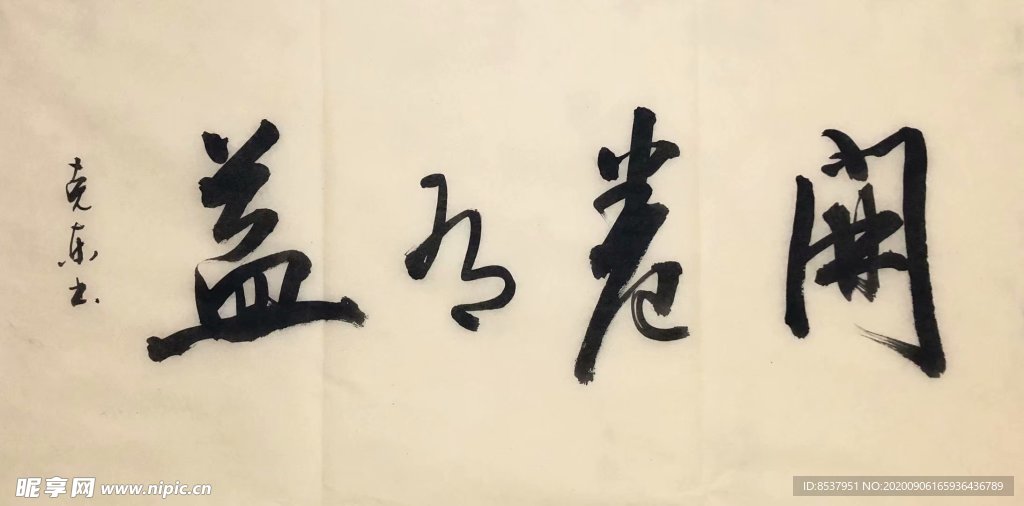 開卷有益
克东书
昵享网 www.nipic.cn
ID:8537951 NO:20200906165936436789